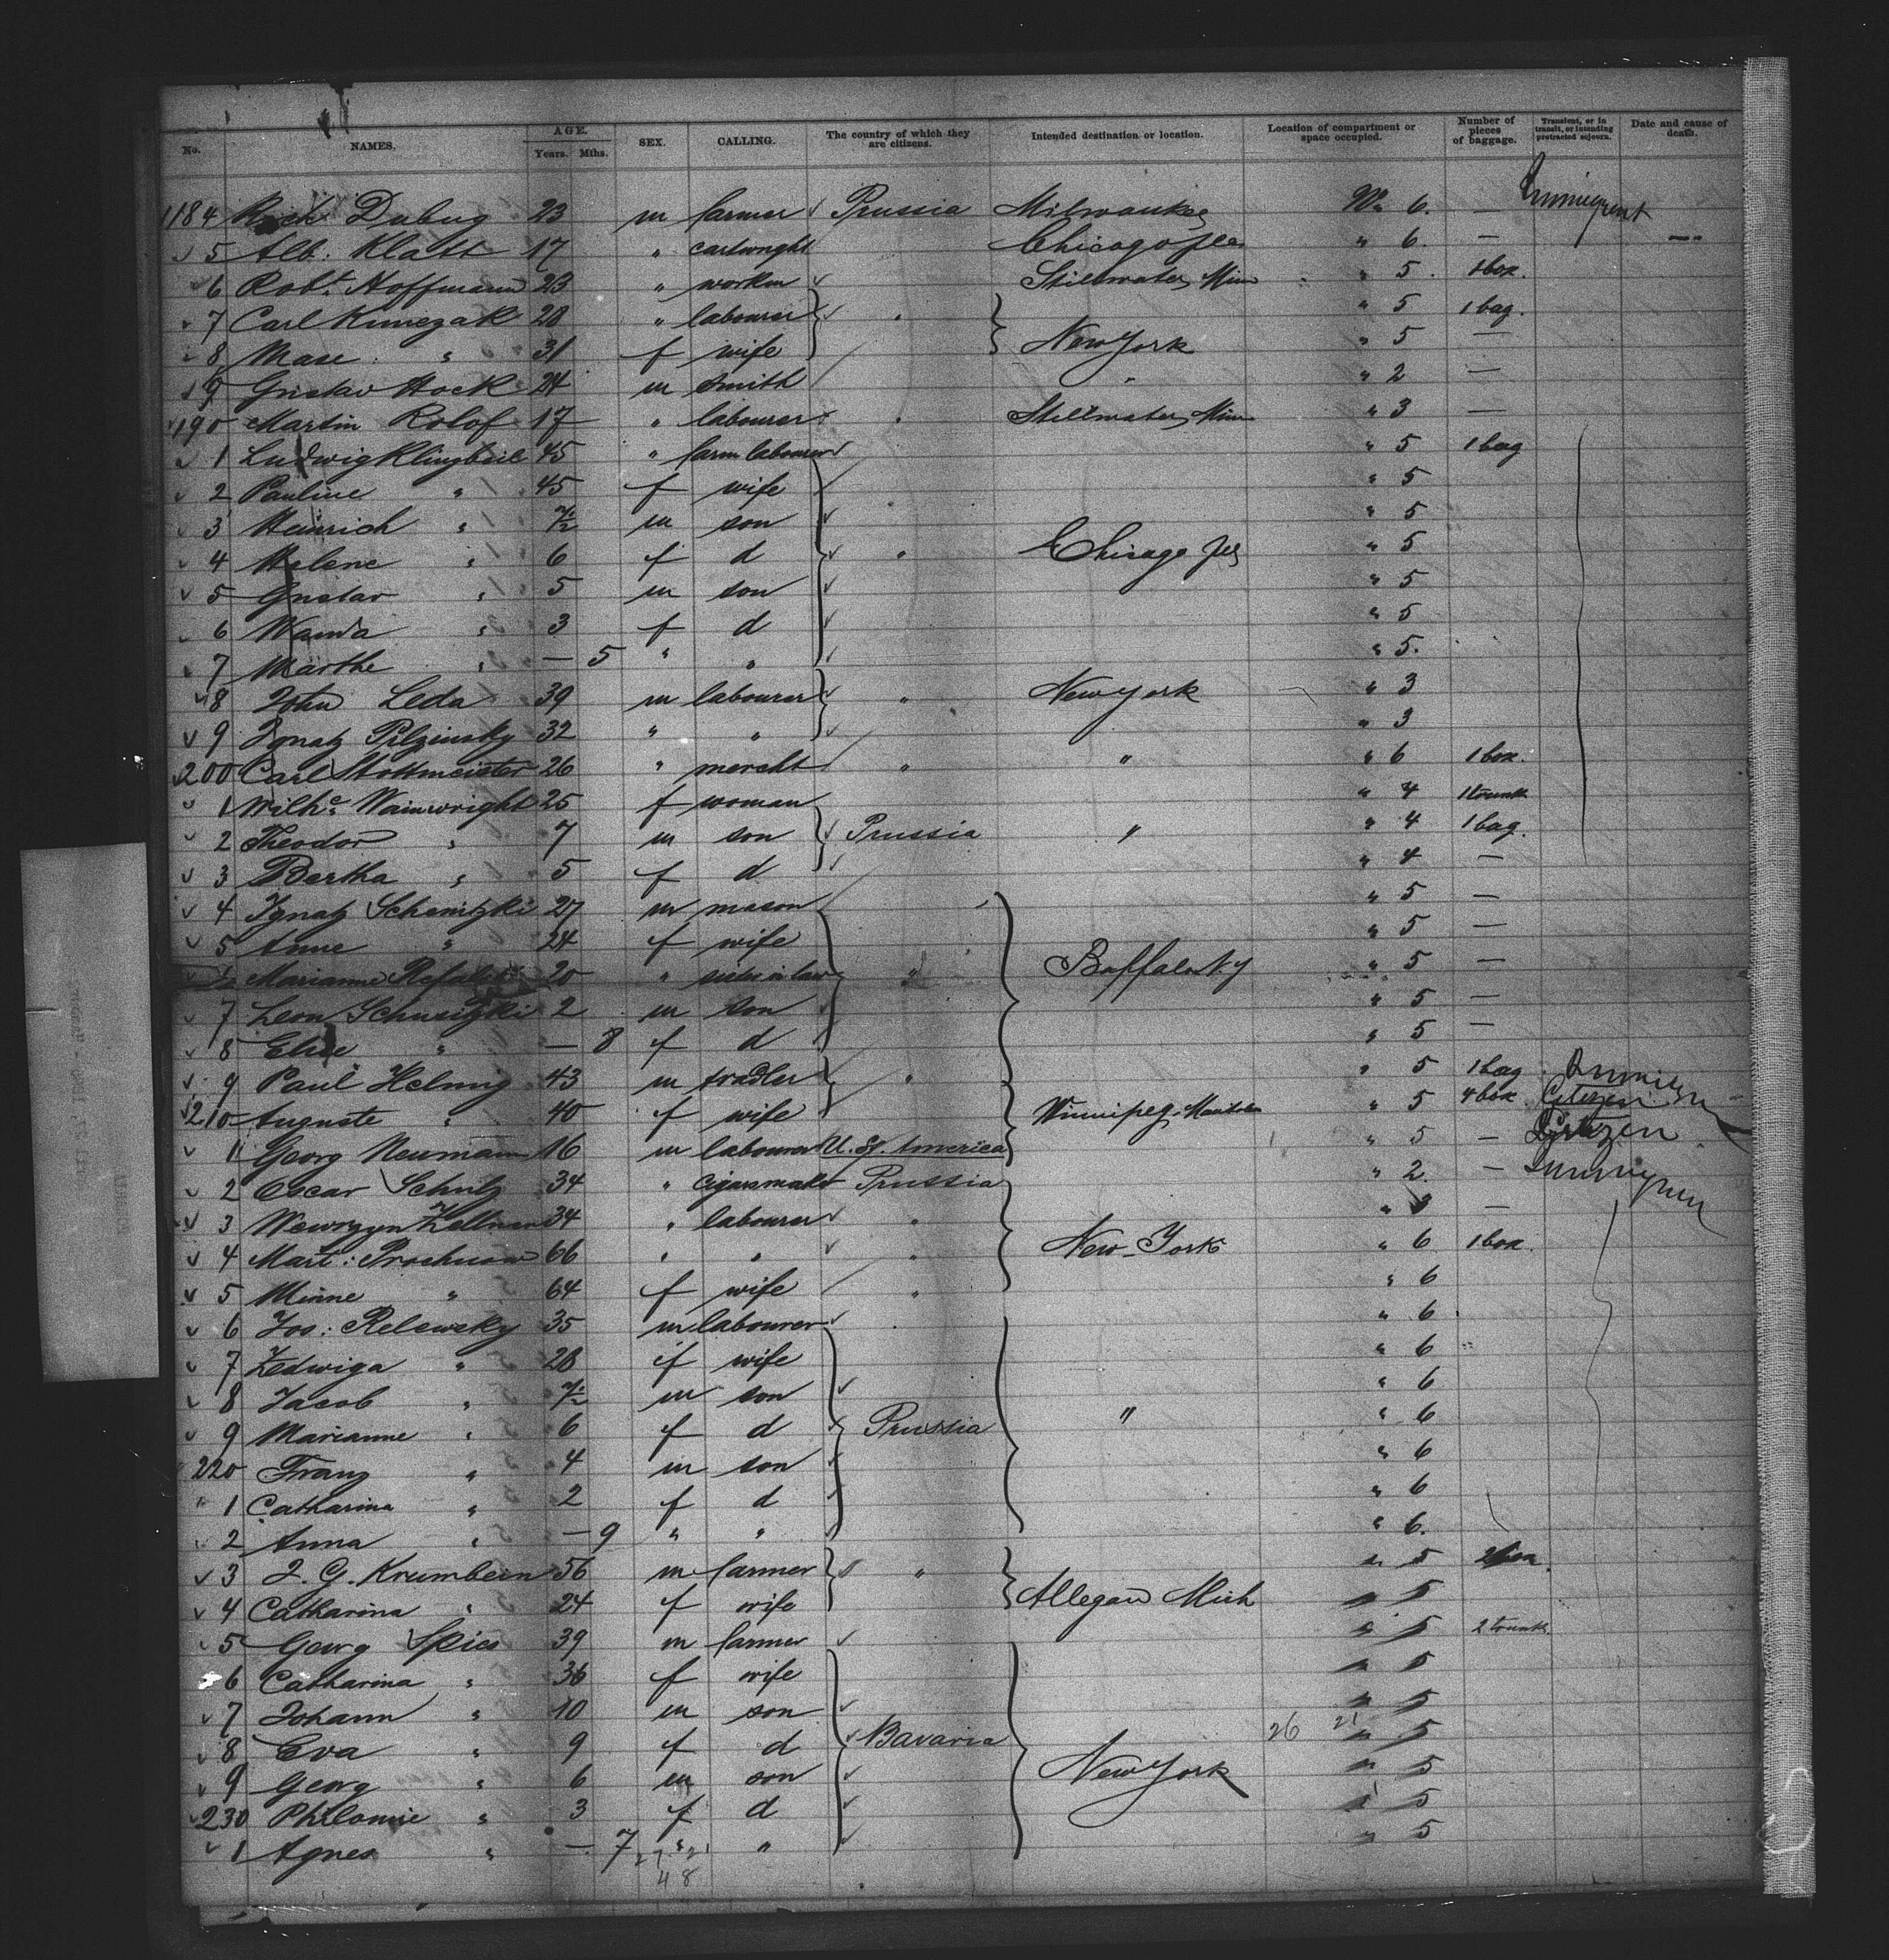 No. NAMES. AGE. Years. Mths. SEX. CALLING. The country of which they are citizens. Intended destination or location. Location of compartment or space occupied. Number of pieces of baggage. Transient, or in transit, or intending protracted sojourn. Date and cause of death.
1184 Dubug 23 m farmer Prussia Milwaukee 6. —
5 Alb: Klatt 17 " cartwright Chicago " 6. —
6 Robt. Hoffmann 23 " Stillwater, Minn " 5. 1 box.
7 Carl Kunczak 28 " labourer " " 5 1 bag.
8 " 31 f wife New York " 5 —
9 Gustav Hock 24 m smith " " 2 —
190 Martin Rolof 17 " labourer " Stillwater, Minn " 3 —
1 Ludwig Klingbeil 45 " farm labourer " 5 1 bag
2 Pauline " 45 f wife " 5
3 Heinrich " m son " 5
4 Helene " 6 f d " Chicago " 5
5 Gustav " 5 m son " 5
6 Wanda " 3 f d " 5
7 Marthe " — 5 " " " 5.
8 John Leda 39 m labourer " New York " 3
9 Ignatz Pilzinsky 32 " " " 3
200 Carl Stottmeister 26 " mercht " " " 6 1 box.
1 Wilhe. Wainwright 25 f woman " 4 1 trunk
2 Theodor " 7 m son Prussia " " 4 1 bag.
3 Bertha " 5 f d " 4 —
4 Ignatz 27 m mason " 5 —
5 Anne " 24 f wife " 5 —
Marianne 20 " sister in law " Buffalo N.Y " 5 —
7 Leon 2 m son " 5 —
8 Elise " — 8 f d " 5 —
9 Paul Helmig 43 m " " 5 1 bag
210 Auguste " 40 f wife Winnipeg, Manitoba " 5 4 box Citizen
11 Georg Neumann 16 m labourer U. St. America " 5 — Citizen
2 Oscar Schulz 34 " Cigarmaker Prussia " 2. —
3 34 " labourer " " —
4 Mart: Prochnow 66 " " " New-York " 6 1 box.
5 Minne " 64 f wife " " 6
6 Jos: Relewsky 35 m labourer " 6
7 Hedwiga " 28 f wife " 6
8 Jacob " m son " 6
9 Marianne " 6 f d Prussia " " 6
220 Franz " 4 m son " 6
1 Catharina " 2 f d " 6
2 Anna " — 9 " " " 6.
3 J. G. Krumbein 56 m farmer " " 5
4 Catharina " 24 f wife Allegan Mich " 5
5 Georg Spies 39 m farmer " 5 2 trunk
6 Catharina " 36 f wife " 5
7 Johann " 10 m son " 5
8 Eva " 9 f d Bavaria 26 21 " 5
9 Georg " 6 m son New York " 5
230 Philomie " 3 f d " 5
1 Agnes " — 7 " " " 5
48